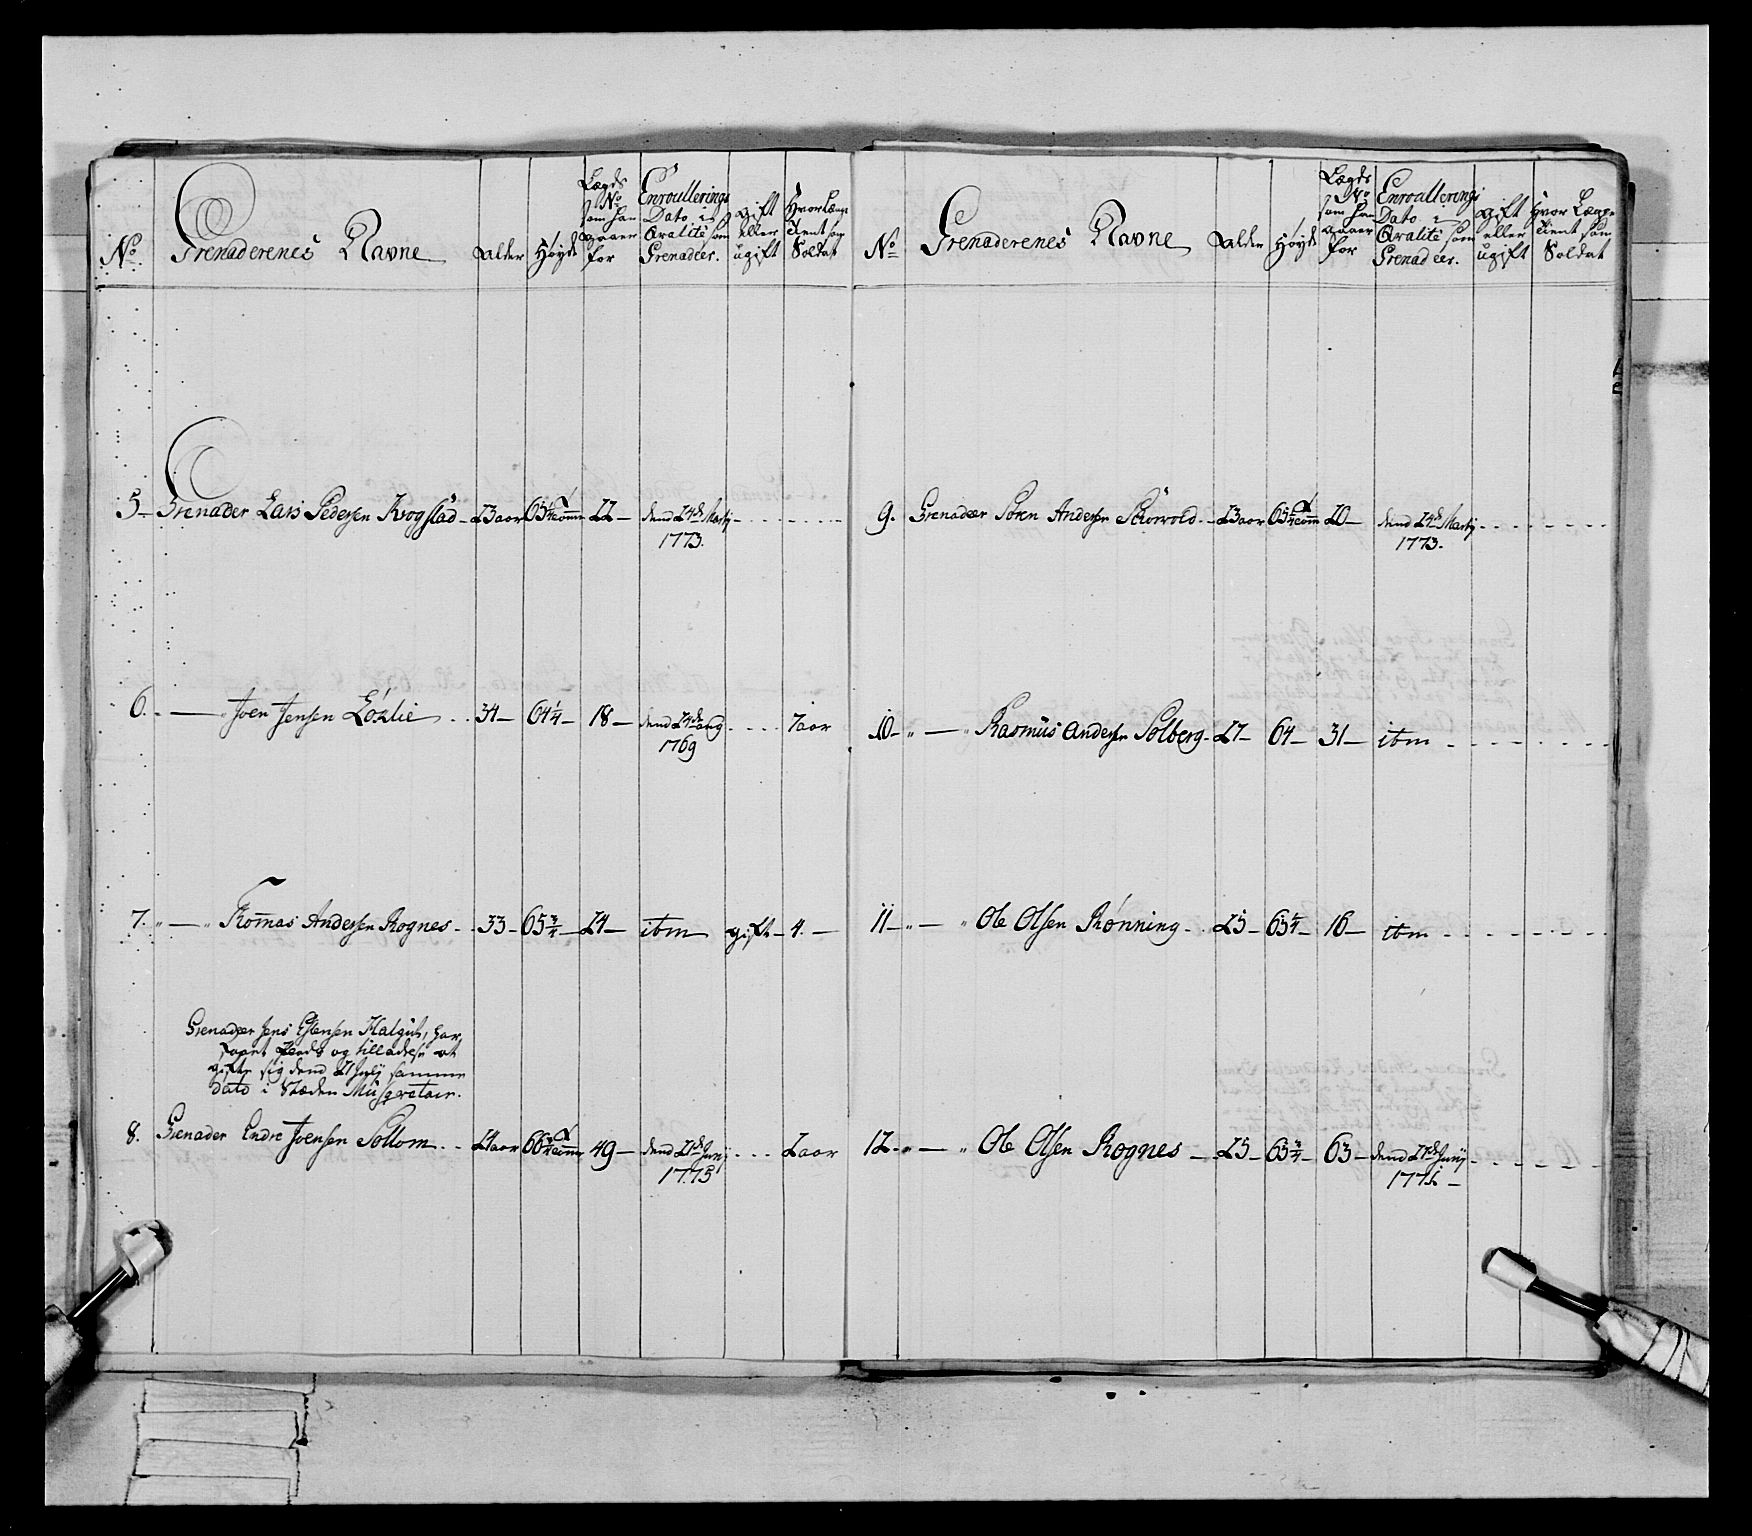 No. Grenaderenes Navne Alder Høyde Lægds No som han staaer for Enroullerings Dato i Qvalité som Grenadeer. gift eller ugift Hvor Længe tient som Soldat
5 Grenader Lars Pedersen Krogstad 23 aar 65 22 dend 24de Martij
1773.
6. " Joen Jensen 34 64 1/4 18 dend 24de aug 7 aar
1769
7. " Thomas Andersen Rognes 33 65 3/4 24 itm gift 4.
Grenadeer Jens Estensen Halgut, har
faaet Pends og tilladelse at
gifte sig dend 27 Junij samme
dato i Stæden Musqvetair.
8. Grenader Endre Joensen Sollom 24 aar 66 49 dend 27de Junij 2 aar
1775
No Grenaderenes Navne Alder Høyde Lægds No som han staaer for Enroullerings Dato i Qvalité som Grenadeer. gift eller ugift Hvor Længe tient som Soldat
9. Grenadeer Sören Andersen 23 aar 65 20 dend 24de Martij
1773.
10 " Rasmus Andersen Solberg 27 64 31 itm
11 " Ole Olsen Rønning 25 65 1/4 16 itm
12 " Ole Olsen Rognes 25 65 3/4 63 dend 27de Junij